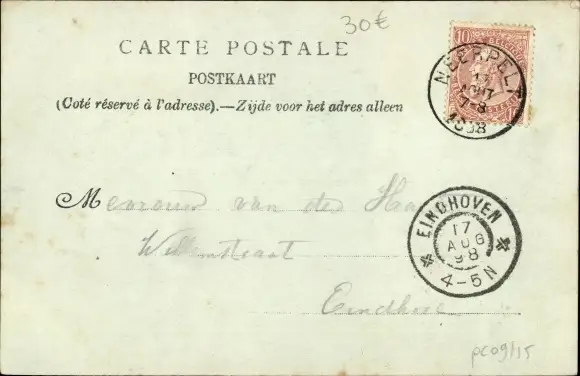 30€
CARTE POSTALE
POSTKAART
(Coté réservé à l'adresse).—Zijde voor het adres alleen
10
NEERPELT
17
AOUT
7-8
1898
Mevrouw van der
Willemstraat
EINDHOVEN
17
AUG
98
4-5N
pc09/15